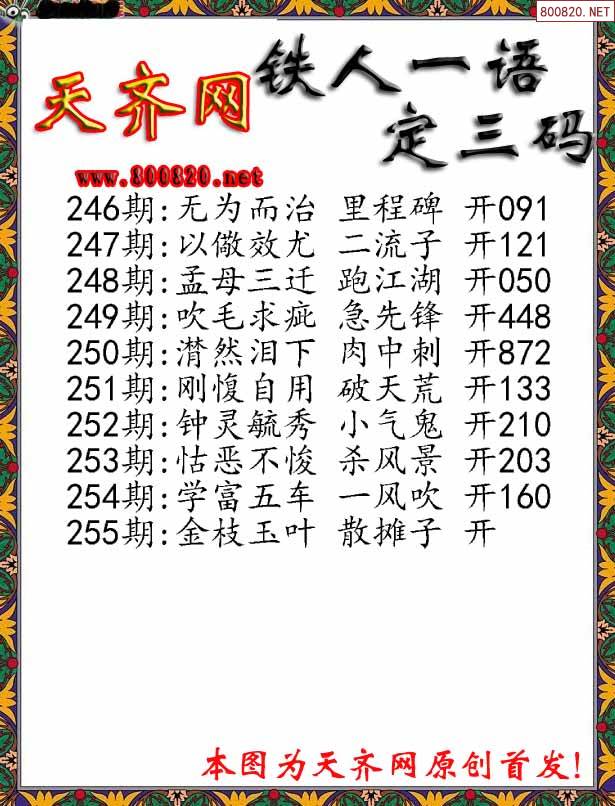 800820.NET
铁人一语
天齐网
定三码
www.800820.net
246期:无为而治 里程碑 开091
247期:以儆效尤 二流子 开121
248期:孟母三迁 跑江湖 开050
249期:吹毛求疵 急先锋 开448
250期:潸然泪下 肉中刺 开872
251期:刚愎自用 破天荒 开133
252期:钟灵毓秀 小气鬼 开210
253期:怙恶不悛 杀风景 开203
254期:学富五车 一风吹 开160
255期:金枝玉叶 散摊子 开
本图为天齐网原创首发!